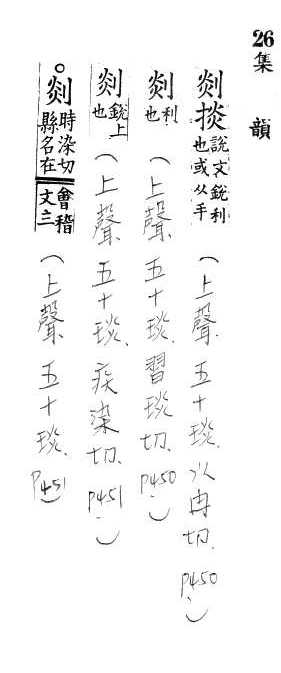 26 集韻
剡掞 說文銳利也或从手(上聲、五十琰、以冉切、P450、)
剡 利也(上聲、五十琰、習琰切、P450、)
剡 銳上也(上聲、五十琰、疾染切、P451、)
○剡 時染切縣名在會稽文三(上聲、五十琰、P451)